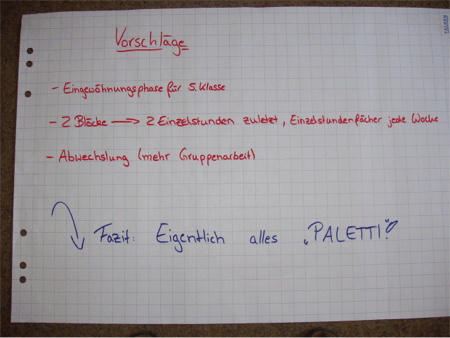 Vorschläge
- Eingewöhnungsphase für 5. Klasse
- 2 Blöcke → 2 Einzelstunden zuletzt, Einzelstundenfächer jede Woche
- Abwechslung (mehr Gruppenarbeit)
Fazit: Eigentlich alles „PALETTI!"